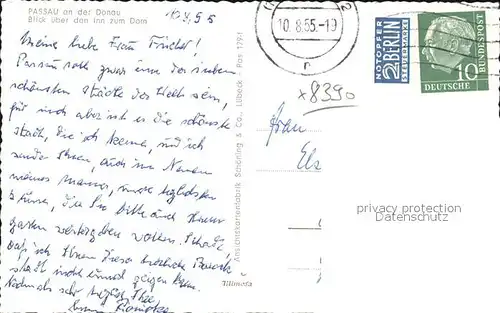 PASSAU an der Donau
Blick über den Inn zum Dom
10.8.55
Meine liebe Frau Frischer!
Passau soll zwar eine der sieben
schönsten Städte der Welt sein,
für mich aber ist es die schönste
Stadt, die ich kenne, und ich
sende Ihnen, auch im Namen
meines Mannes,
Grüsse, die Sie bitte auch Ihrem
Gatten weitergeben wollen. Schade
daß ich Ihnen diese herrliche Barock
stadt nicht einmal zeigen kann.
Nochmals sehr herzlich Ihre
Ansichtskartenfabrik Schöning & Co., Lübeck - Pas 1791
10.8.55-19
NOTOPFER
2 BERLIN
STEUERMARKE
10
DEUTSCHE
x8390
Frau
Els
privacy protection
Datenschutz